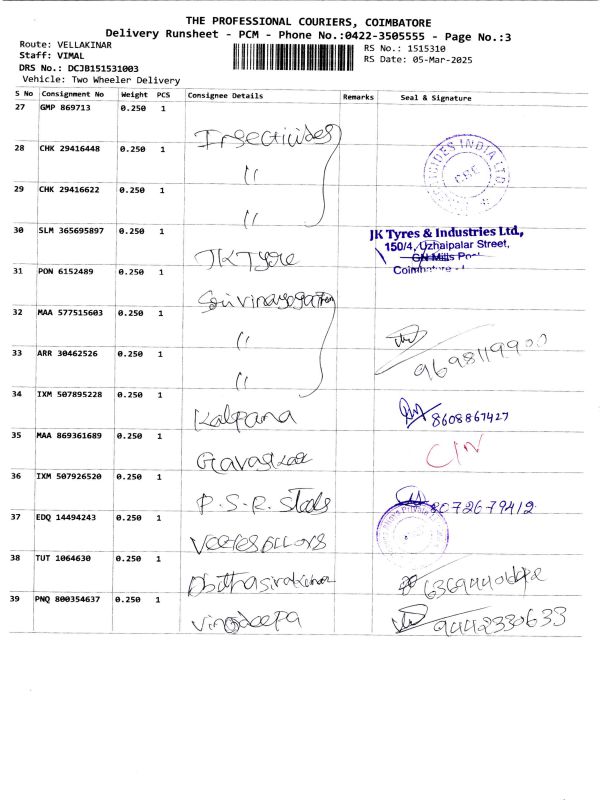 THE PROFESSIONAL COURIERS, COIMBATORE
Delivery Runsheet - PCM - Phone No.:0422-3505555 - Page No.:3
Route: VELLAKINAR
Staff: VIMAL
DRS No.: DCJB151531003
Vehicle: Two Wheeler Delivery
RS No.: 1515310
RS Date: 05-Mar-2025
S No Consignment No Weight PCS Consignee Details Remarks Seal & Signature
27 GMP 869713 0.250 1 Insecticides
28 CHK 29416448 0.250 1 "
29 CHK 29416622 0.250 1 "
INDIA LTD
30 SLM 365695897 0.250 1 JK Tyre
JK Tyres & Industries Ltd.,
150/4, Uzhaipalar Street,
GN Mills Post
Coimbatore
31 PON 6152489 0.250 1
32 MAA 577515603 0.250 1 "
33 ARR 30462526 0.250 1 "
9698119900
34 IXM 507895228 0.250 1 Kalpana 8608867427
35 MAA 869361689 0.250 1
36 IXM 507926520 0.250 1 P.S.R. Steels 8072679412
37 EDQ 14494243 0.250 1
38 TUT 1064630 0.250 1
39 PNQ 800354637 0.250 1 Vinodeepa 9442330633